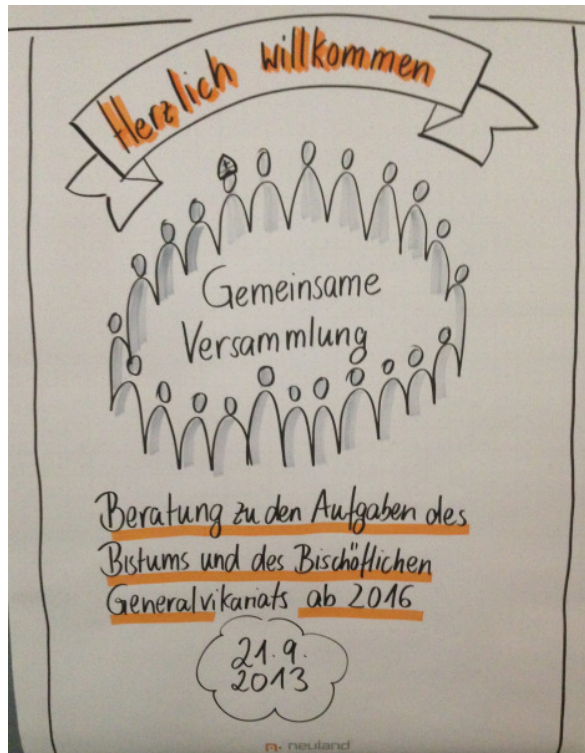 Herzlich willkommen
Gemeinsame
Versammlung
Beratung zu den Aufgaben des
Bistums und des Bischöflichen
Generalvikariats ab 2016
21.9.
2013
neuland